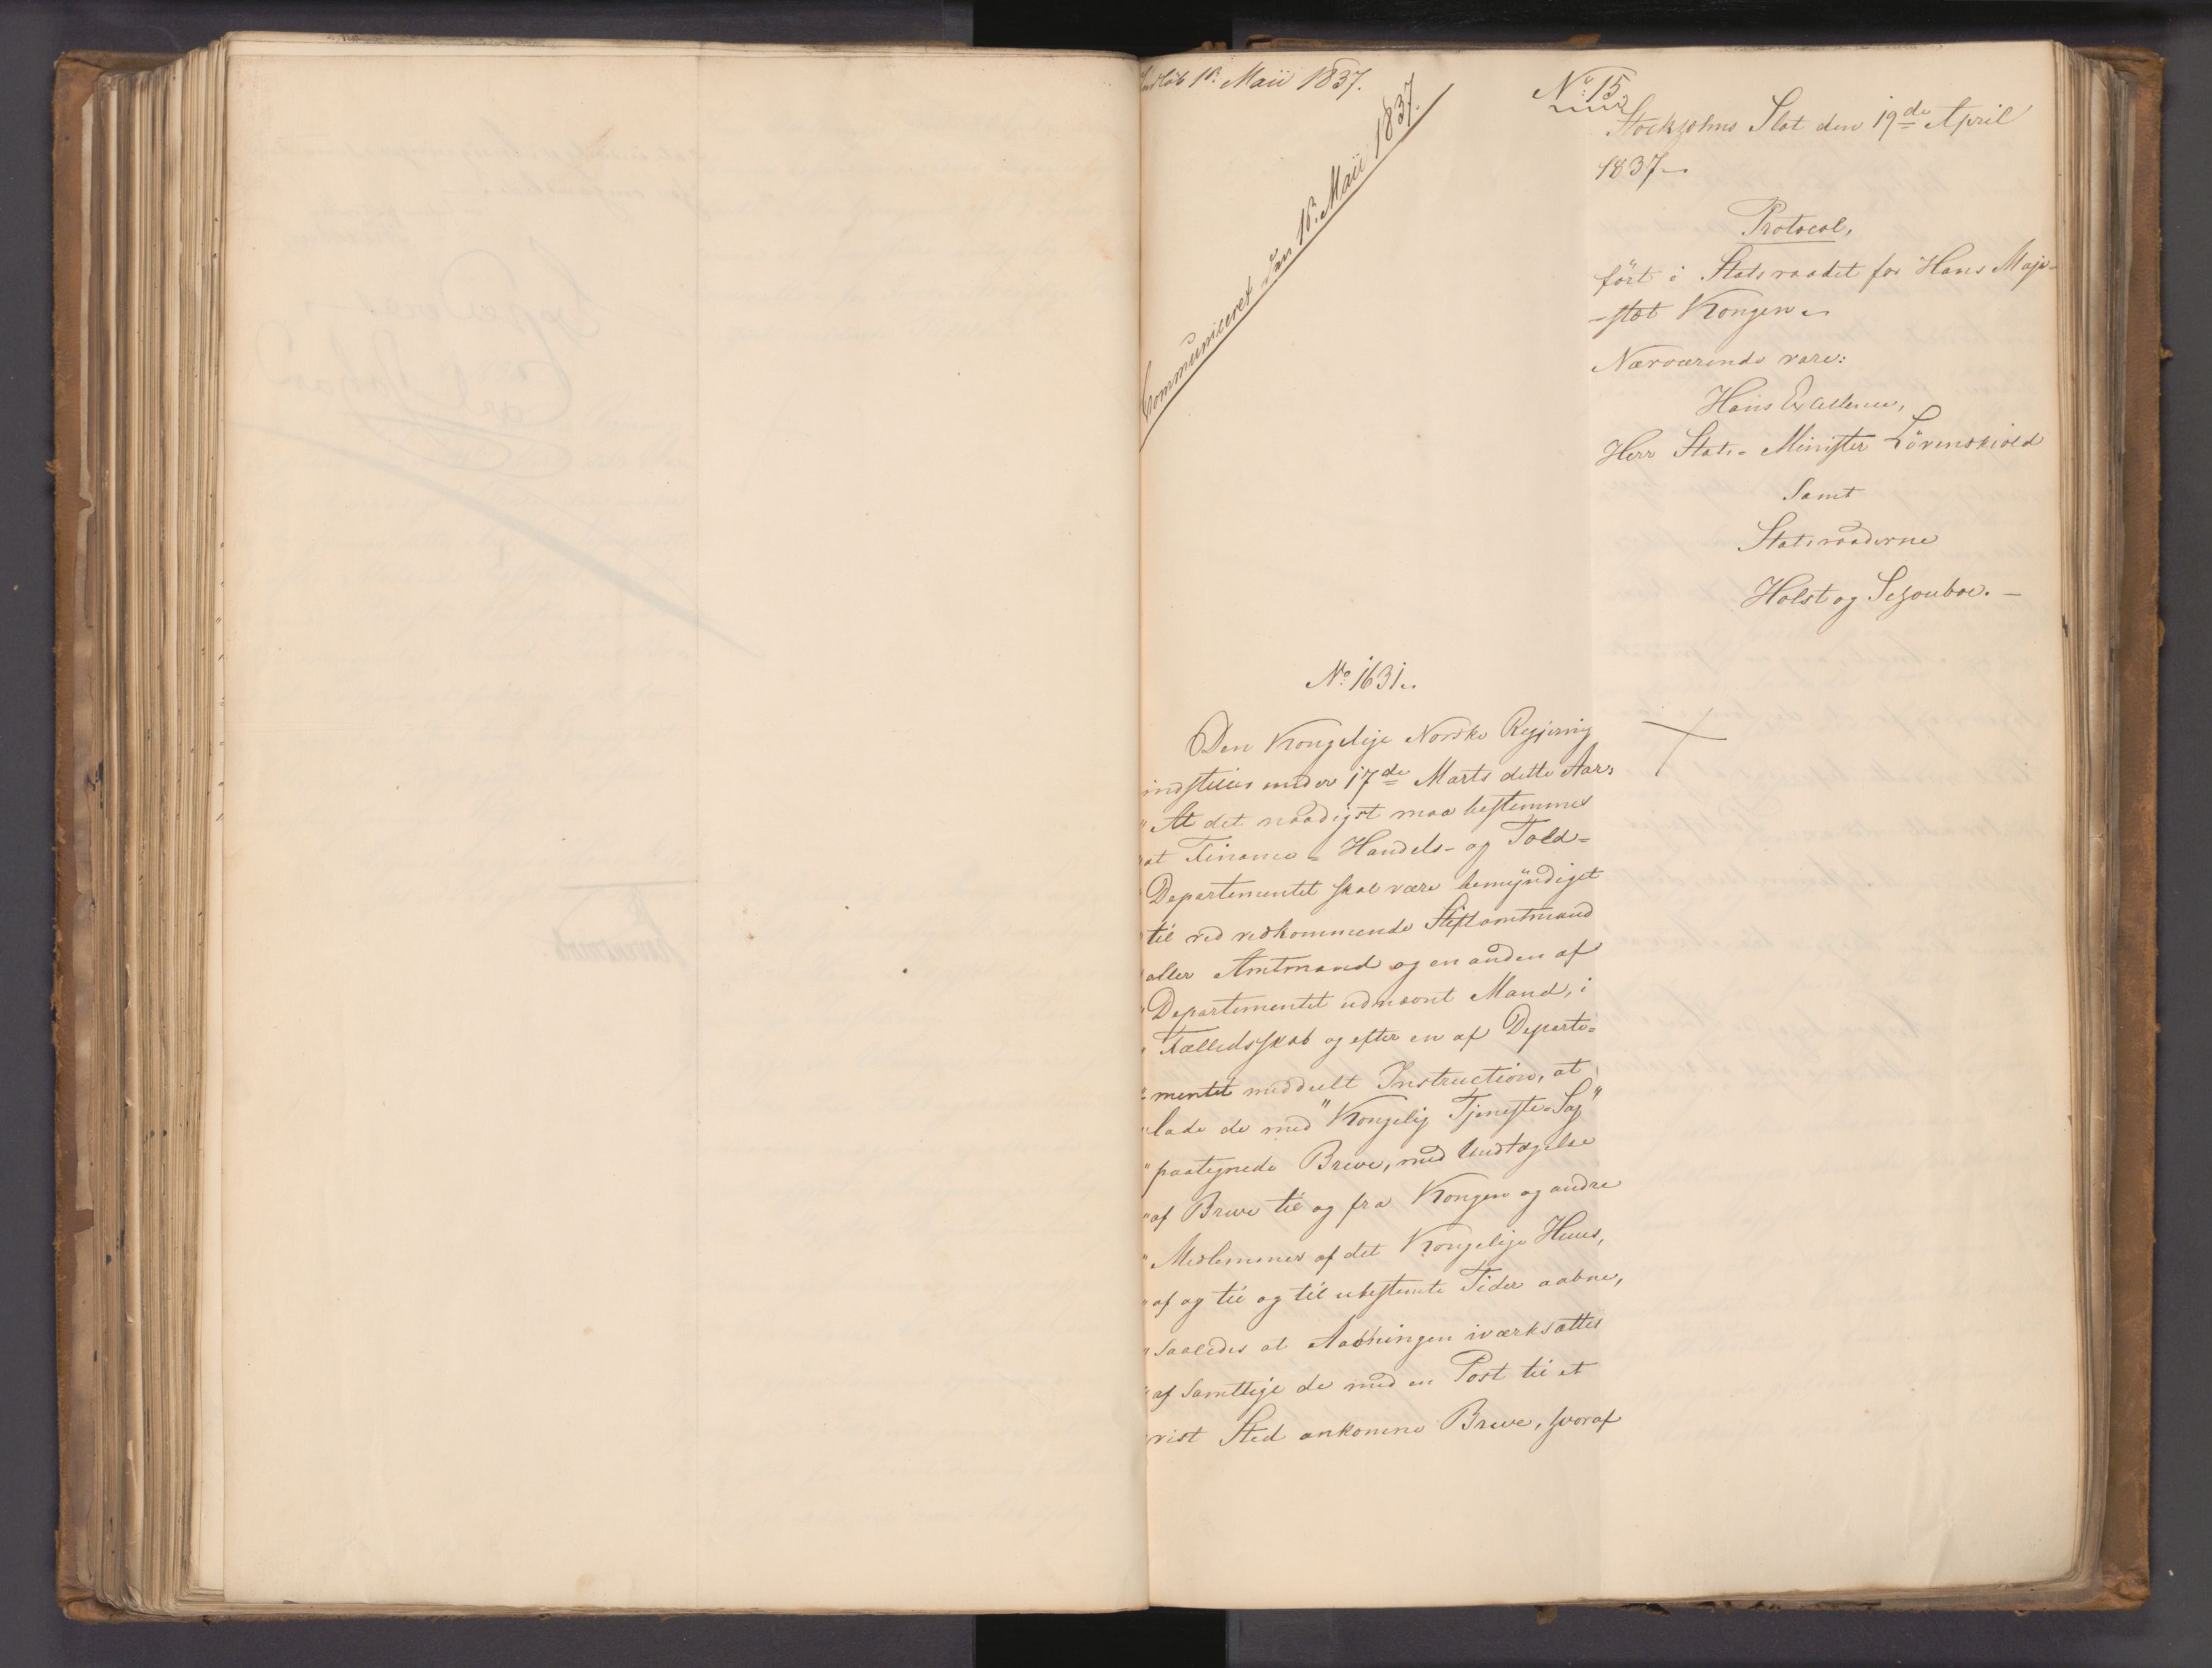 Indløb 1ste Maii 1837.
Communiceret den 1ste Maii 1837.
No: 15
Stockholms Slot den 19de April
1837.
Protocol,
ført i Statsraadet for Hans Maje-
-stæt Kongen.
Nærværende vare:
Hans Excellence,
Herr Stats-Minister Lövenskiold
Samt
Statsraaderne
Holst og Schouboe. —
No: 1631.
Den Kongelige Norske Regjering
indstiller under 17de Marts dette Aar:
"At det naadigst maa bestemmes
"at Finance- Handels- og Told-
"Departementet skal være bemyndiget
"til ved vedkommende Stiftamtmand
"eller Amtmand og en anden af
"Departementet udnævnt Mand, i
"Fælledsskab og efter en af Departe-
"-mentet meddeelt Instruction, at
"lade de med "Kongelig Tjeneste-Sag"
"paategnede Breve, med Undtagelse
"af Breve til og fra Kongen og andre
"Medlemmer af det Kongelige Huus,
"af og til og til ubestemte Tider aabne,
"saaledes at Aabningen iværksættes
"af samtlige de med en Post til et
vist Sted ankomne Breve, hvoraf